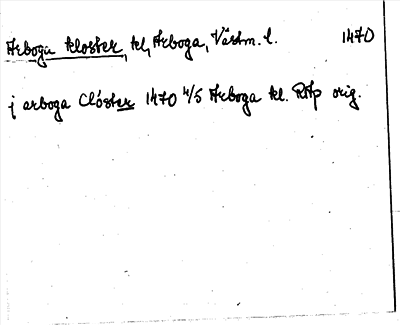 Arboga kloster, kl, Arboga, Västm. l. 1470
j arboga Clóster 1470 4/5 Arboga kl. RAp orig.